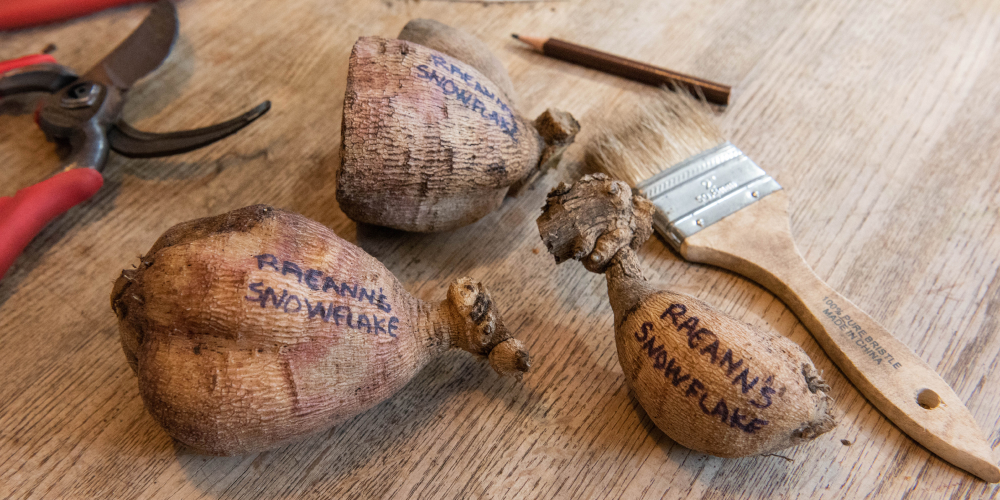 RAEANN'S
SNOWFLAKE
RAEANN'S
SNOWFLAKE
RAEANN'S
SNOWFLAKE
100% PURE BRISTLE
MADE IN CHINA